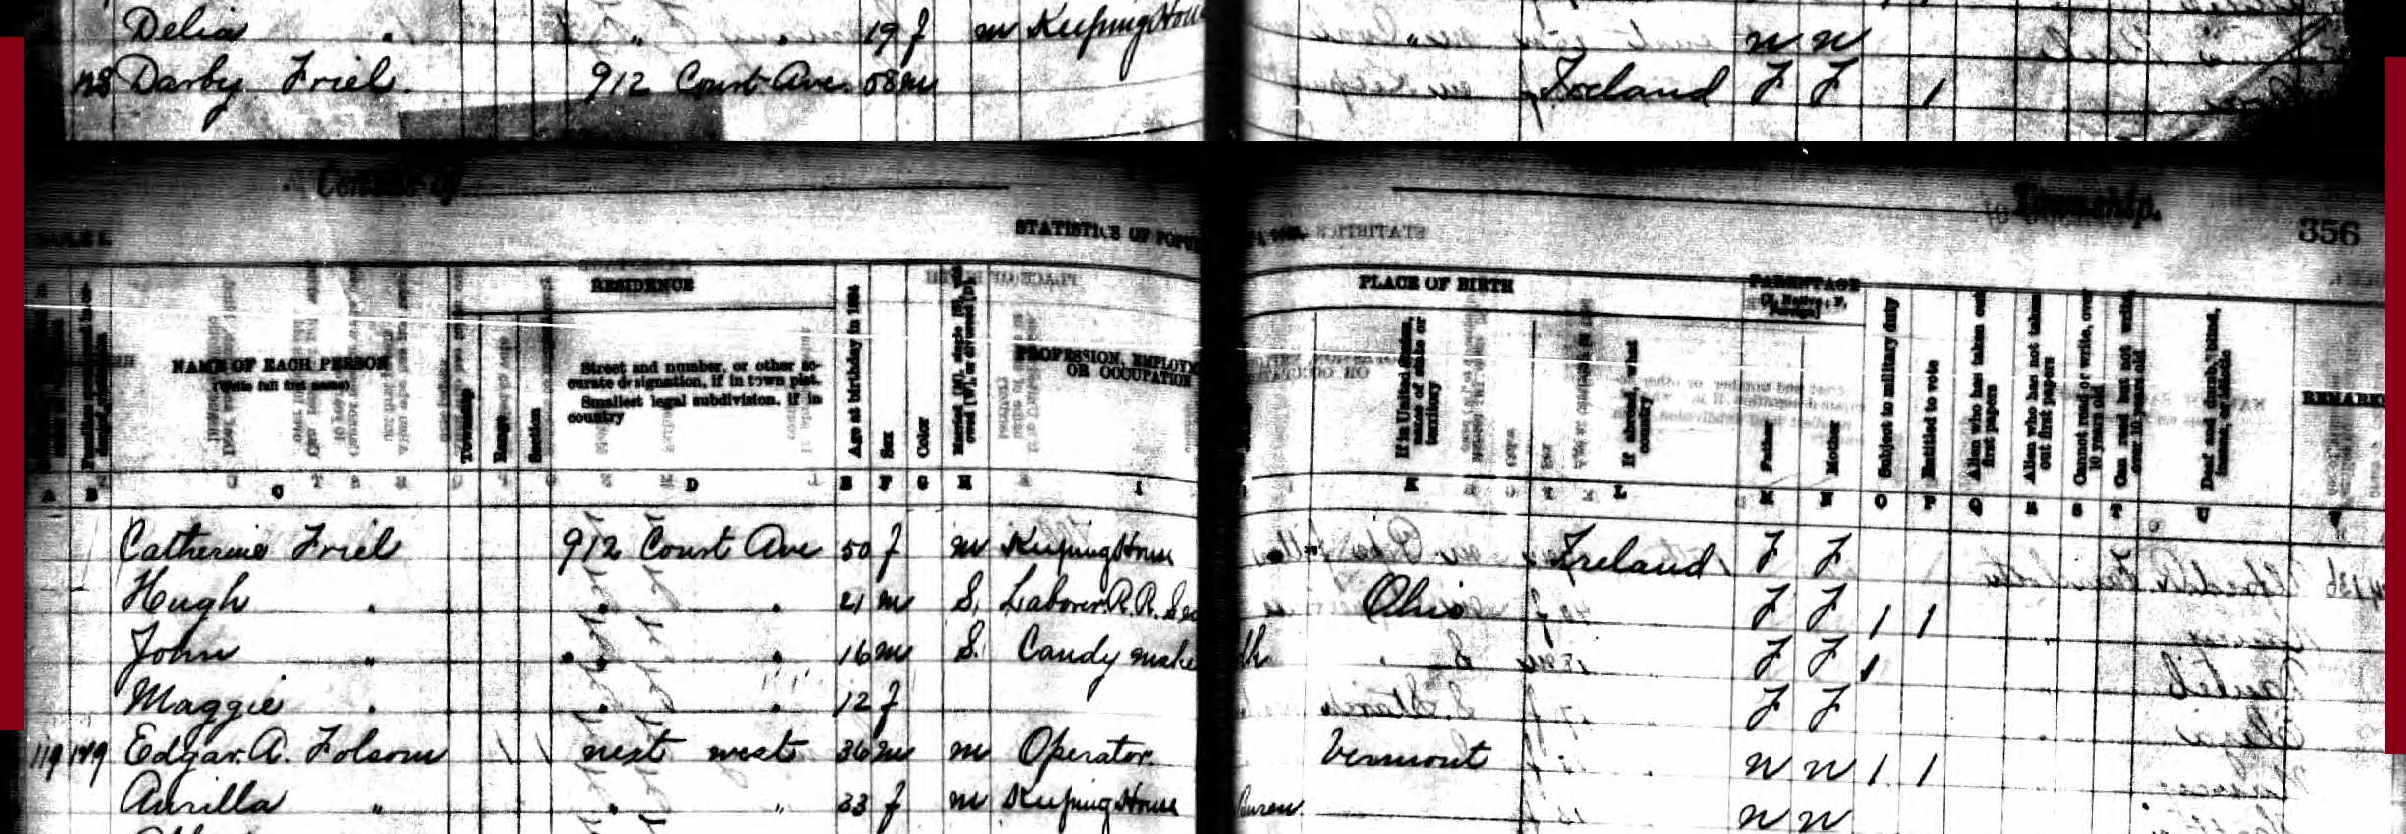 Delia " " " 19 f m Keeping Hou n n
128 Darby Friel. 912 Court Ave. 58 m Ireland F F 1
Census of Township.
356
STATISTICS OF POPU
RESIDENCE PLACE OF BIRTH PARENTAGE
NAME OF EACH PERSON
(Write full first name)
Township
Range
Section
Street and number, or other ac-
curate designation, if in town plat.
Smallest legal subdivision, if in
country
Age at birthday in 1884
Sex
Color
PROFESSION, EMPLOYM
OR OCCUPATION
If in United States,
name of state or
territory
If abroad, what
country
Father
Mother
Subject to military duty
Entitled to vote
Alien who has taken out
first papers
Alien who has not taken
out first papers
Cannot read or write, over
10 years old
Can read but not write,
over 10 years old
Deaf and dumb, blind,
insane, or idiotic
REMARK
A B C D E F G H I K L M N O P Q R S T U V
Catherine Friel 912 Court Ave 50 f m Keeping House Ireland F F
Hugh " " " 21 m S. Laborer R.R. Sec Ohio F F 1 1
John " " " 16 m S. Candy make F F 1
Maggie " " " 12 f F F
119 129 Edgar A. Folsom next west 36 m m Operator. Vermont n n 1 1
Aurilla " " " 33 f m Keeping House n n